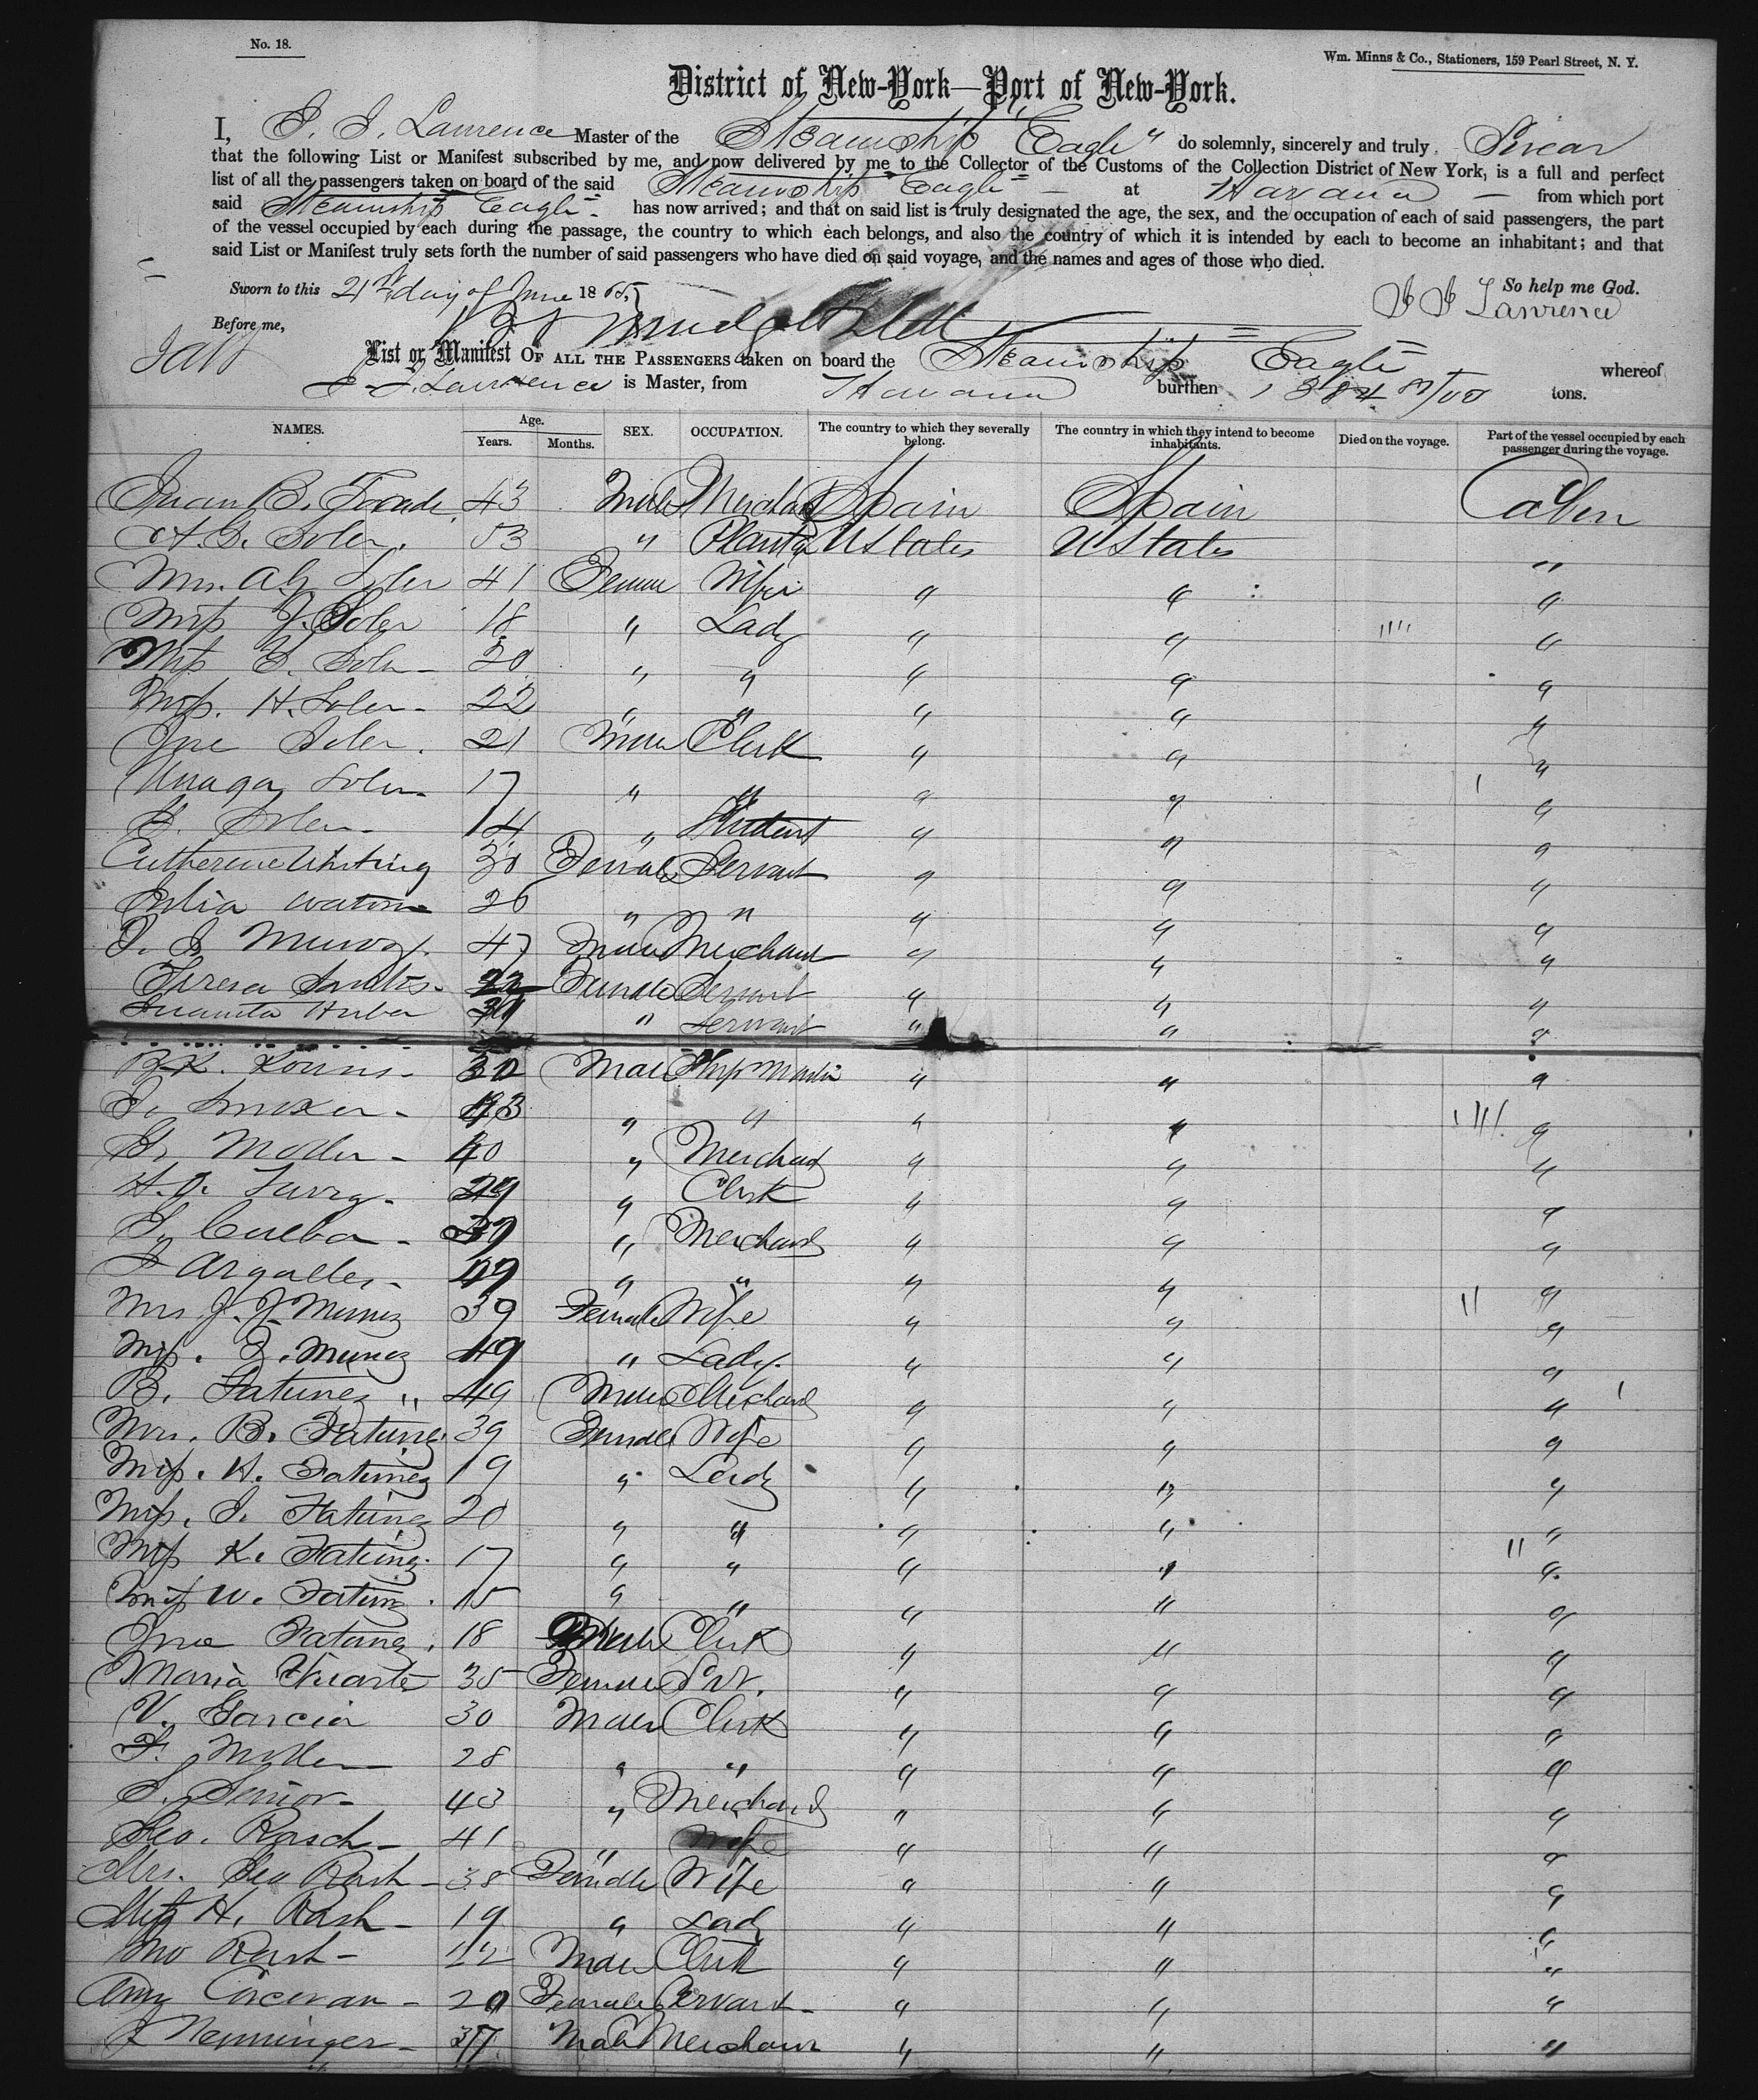 No. 18.
Wm. Minns & Co., Stationers, 159 Pearl Street, N. Y.
District of New-York—Port of New-York.
I, Lawrence Master of the Steamship "Eagle" do solemnly, sincerely and truly Swear
that the following List or Manifest subscribed by me, and now delivered by me to the Collector of the Customs of the Collection District of New York, is a full and perfect
list of all the passengers taken on board of the said Steamship Eagle — at Havana — from which port
said Steamship Eagle has now arrived; and that on said list is truly designated the age, the sex, and the occupation of each of said passengers, the part
of the vessel occupied by each during the passage, the country to which each belongs, and also the country of which it is intended by each to become an inhabitant; and that
said List or Manifest truly sets forth the number of said passengers who have died on said voyage, and the names and ages of those who died.
Sworn to this 21st day of June 1865,
So help me God.
Lawrence
Before me,
List or Manifest OF ALL THE PASSENGERS taken on board the Steamship Eagle whereof
Lawrence is Master, from Havana burthen tons.
NAMES. Age. Years. Months. SEX. OCCUPATION. The country to which they severally belong. The country in which they intend to become inhabitants. Died on the voyage. Part of the vessel occupied by each passenger during the voyage.
Juan B. 43 Male Merchant Spain Spain Cabin
A. G. Soler. 53 " Planter U States U States "
Mrs. A. G. Soler 41 Female Wife " " "
Miss J. Soler 18 " Lady " " "
Miss Soler - 20 " " " " "
Miss. H. Soler - 22 " " " " "
Jose Soler. 21 Male Clerk " " "
Soler - 17 " " " " "
Soler - 14 " Student " " "
Catherine Whiting 30 Female Servant " " "
Julia Watson 26 " " " " "
47 Male Merchant " " "
Teresa Santos - 22 Female Servant " " "
Juanita " Servant " " "
Male Ship Master " " "
" " " " "
Moller - 40 " Merchant " " "
29 " Clerk " " "
Cueba - " Merchant " " "
Arguelles - " " " " "
Mrs J. J. Munez 39 Female Wife " " "
Miss. Munez " Lady. " " "
B. Fatunez " 49 Male Merchant " " "
Mrs. B. Fatunez 39 Female Wife " " "
Miss. H. Fatunez 19 " Lady " " "
Miss. Fatunez 20 " " " " "
Miss K. Fatunez. 17 " " " " "
Miss W. Fatunez. 15 " " " " "
Jose Fatunez. 18 Male Clerk " " "
Maria 35 Female " " "
V. Garcia 30 Male Clerk " " "
28 " " " " "
Senior - 43 " Merchant " " "
Geo. Rasch - 41 " " " "
Mrs. Geo Rash - 38 Female Wife " " "
Miss H. Rash - 19 " Lady " " "
Rash - Male Clerk " " "
Amy Corcoran - 20 Female Servant - " " "
Nenninger - 37 Male Merchant " " "